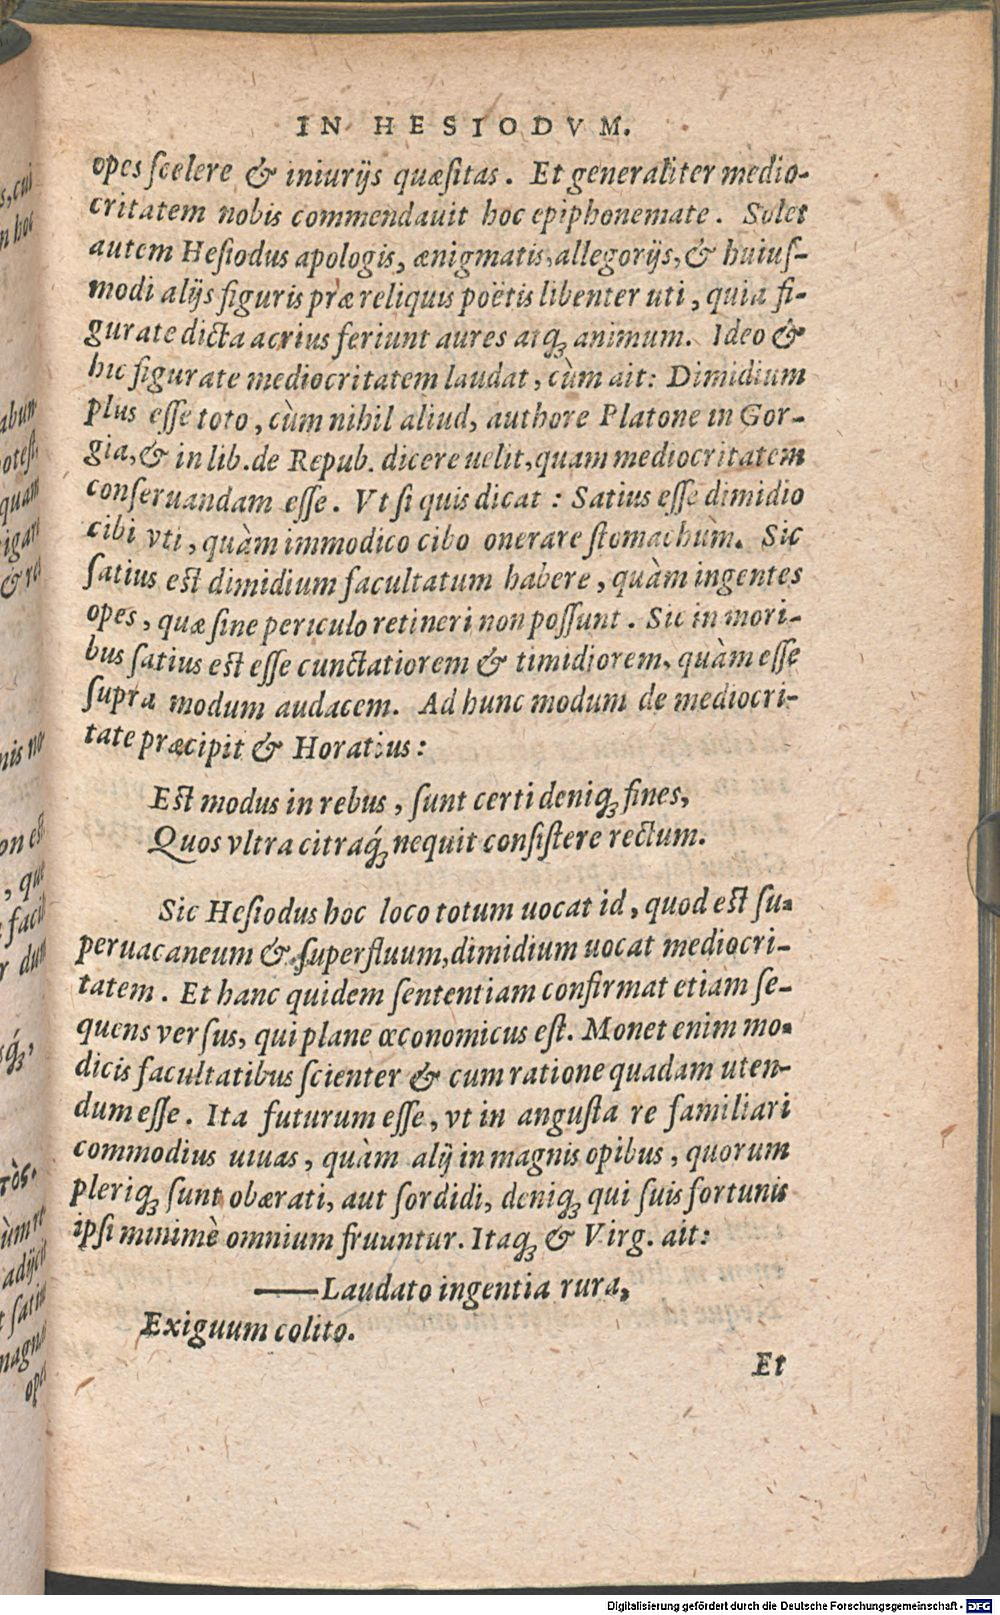 IN HESIODVM.
opes scelere & iniurijs quæsitas. Et generaliter medio-
critatem nobis commendauit hoc epiphonemate. Solet
autem Hesiodus apologis, ænigmatis, allegorijs, & huius-
modi alijs figuris præ reliquis poëtis libenter uti, quia fi-
gurate dicta acrius feriunt aures atq; animum. Ideo &
hic figurate mediocritatem laudat, cùm ait: Dimidium
plus esse toto, cùm nihil aliud, authore Platone in Gor-
gia, & in lib. de Repub. dicere uelit, quam mediocritatem
conseruandam esse. Vt si quis dicat: Satius esse dimidio
cibi vti, quàm immodico cibo onerare stomachum. Sic
satius est dimidium facultatum habere, quàm ingentes
opes, quæ sine periculo retineri non possunt. Sic in mori-
bus satius est esse cunctatiorem & timidiorem, quàm esse
supra modum audacem. Ad hunc modum de mediocri-
tate præcipit & Horatius:
Est modus in rebus, sunt certi deniq; fines,
Quos vltra citraq́; nequit consistere rectum.
Sic Hesiodus hoc loco totum uocat id, quod est su-
peruacaneum & superfluum, dimidium uocat mediocri-
tatem. Et hanc quidem sententiam confirmat etiam se-
quens versus, qui plane œconomicus est. Monet enim mo-
dicis facultatibus scienter & cum ratione quadam uten-
dum esse. Ita futurum esse, vt in angusta re familiari
commodius uiuas, quàm alij in magnis opibus, quorum
pleriq; sunt obærati, aut sordidi, deniq; qui suis fortunis
ipsi minimè omnium fruuntur. Itaq; & Virg. ait:
——Laudato ingentia rura,
Exiguum colito.
Et
Digitalisierung gefördert durch die Deutsche Forschungsgemeinschaft - DFG